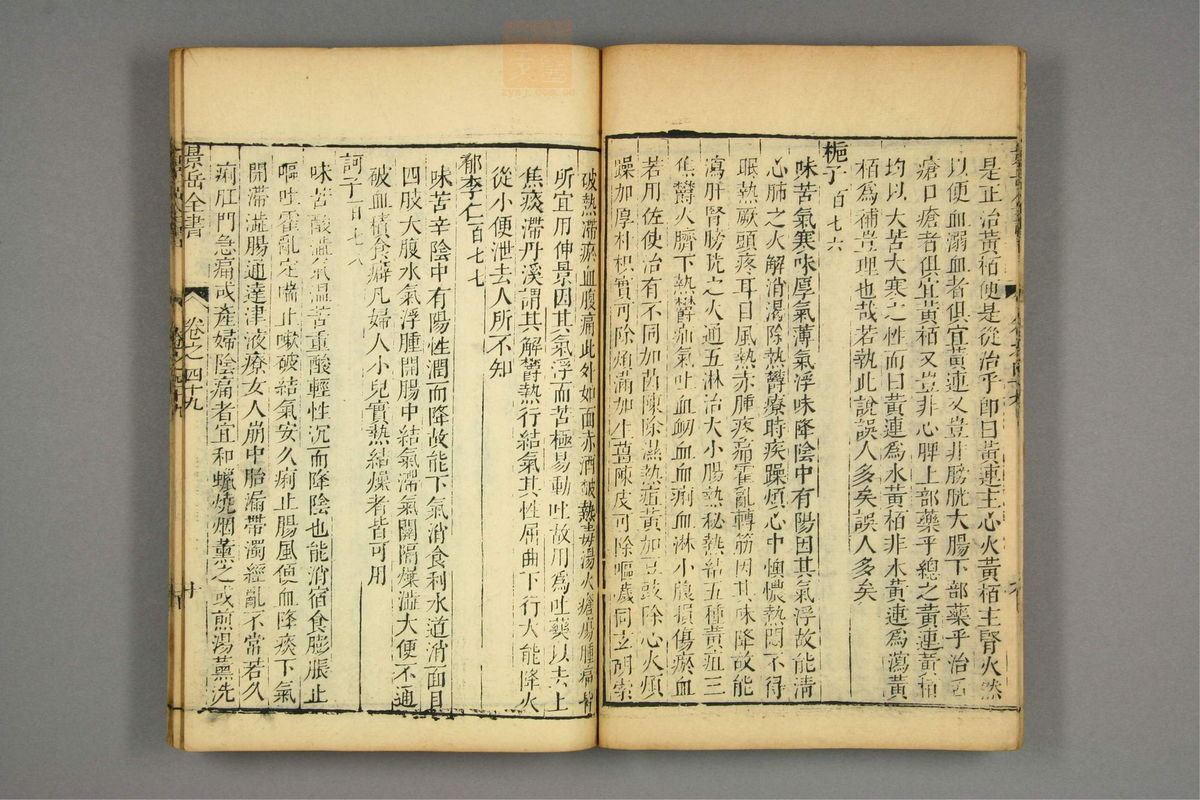 是正治黃栢便是從治乎即曰黃連主心火黃栢主腎火然
以便血溺血者俱宜黃連又豈非膀胱大腸下部藥乎治舌
瘡口瘡者俱宜黃栢又豈非心脾上部藥乎總之黃連黃栢
均以大苦大寒之性而曰黃連為水黃栢非水黃連為瀉黃
栢為補豈理也哉若執此說誤人多矣誤人多矣
梔子百七六
味苦氣寒味厚氣薄氣浮味降陰中有陽因其氣浮故能清
心肺之火解消渴除熱鬱療時疾躁煩心中懊憹熱悶不得
眠熱厥頭疼耳目風熱赤腫疼痛霍亂轉筋因其味降故能
瀉肝腎膀胱之火通五淋治大小腸熱秘熱結五種黃疸三
焦鬱火臍下熱鬱疝氣吐血衂血血痢血淋小腹損傷瘀血
若用佐使治有不同加茵陳除濕熱疸黃加豆豉除心火煩
躁加厚朴枳實可除煩滿加生薑陳皮可除嘔噦同玄胡索
破熱滯瘀血腹痛此外如面赤酒皶熱毒湯火瘡瘍腫痛皆
所宜用仲景因其氣浮而苦極易動吐故用為吐藥以去上
焦痰滯丹溪謂其解鬱熱行結氣其性屈曲下行大能降火
從小便泄去人所不知
郁李仁百七七
味苦辛陰中有陽性潤而降故能下氣消食利水道消面目
四肢大腹水氣浮腫開腸中結氣滯氣關隔燥澁大便不通
破血積食癖凡婦人小兒實熱結燥者皆可用
訶子百七八
味苦酸澁氣溫苦重酸輕性沉而降陰也能消宿食膨脹止
嘔吐霍亂定喘止嗽破結氣安久痢止腸風便血降痰下氣
開滯澁腸通達津液療女人崩中胎漏帶濁經亂不常若久
痢肛門急痛或產婦陰痛者宜和蠟燒烟薰之或煎湯薰洗
景岳全書
卷之四十九
十